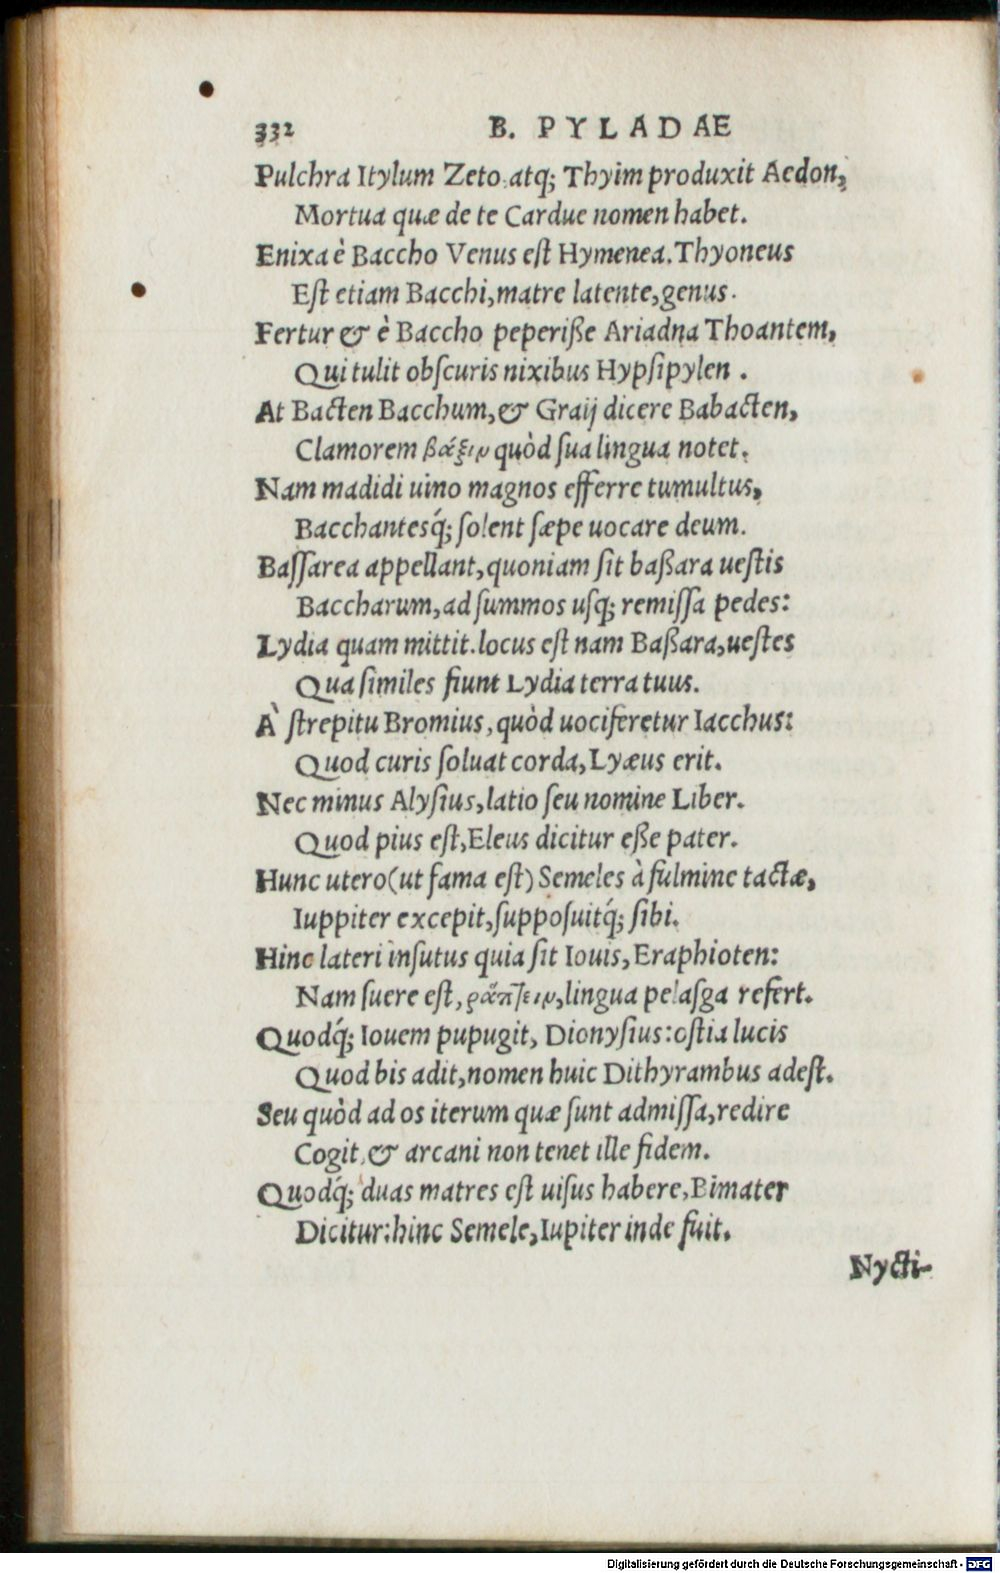 332 B. PYLADAE
Pulchra Itylum Zeto atq; Thyim produxit Aedon,
Mortua quæ de te Cardue nomen habet.
Enixa è Baccho Venus eſt Hymenea. Thyoneus
Eſt etiam Bacchi, matre latente, genus.
Fertur & è Baccho peperiße Ariadna Thoantem,
Qui tulit obſcuris nixibus Hypſipylen.
At Bacten Bacchum, & Graij dicere Babacten,
Clamorem βάξιν quòd ſua lingua notet.
Nam madidi uino magnos efferre tumultus,
Bacchantesq́; ſolent ſæpe uocare deum.
Baſſarea appellant, quoniam ſit baßara ueſtis
Baccharum, ad ſummos uſq; remiſſa pedes:
Lydia quam mittit. locus eſt nam Baßara, ueſtes
Qua ſimiles fiunt Lydia terra tuus.
À ſtrepitu Bromius, quòd uociferetur Iacchus:
Quod curis ſoluat corda, Lyæus erit.
Nec minus Alyſius, latio ſeu nomine Liber.
Quod pius eſt, Eleus dicitur eße pater.
Hunc utero (ut fama eſt) Semeles à fulmine tactæ,
Iuppiter excepit, ſuppoſuitq́; ſibi.
Hinc lateri inſutus quia ſit Iouis, Eraphioten:
Nam ſuere eſt, ῥάπτειν, lingua pelaſga refert.
Quodq́; Iouem pupugit, Dionyſius: oſtia lucis
Quod bis adit, nomen huic Dithyrambus adeſt.
Seu quòd ad os iterum quæ ſunt admiſſa, redire
Cogit, & arcani non tenet ille fidem.
Quodq́; duas matres eſt uiſus habere, Bimater
Dicitur: hinc Semele, Iupiter inde fuit.
Nycti-
Digitalisierung gefördert durch die Deutsche Forschungsgemeinschaft - DFG